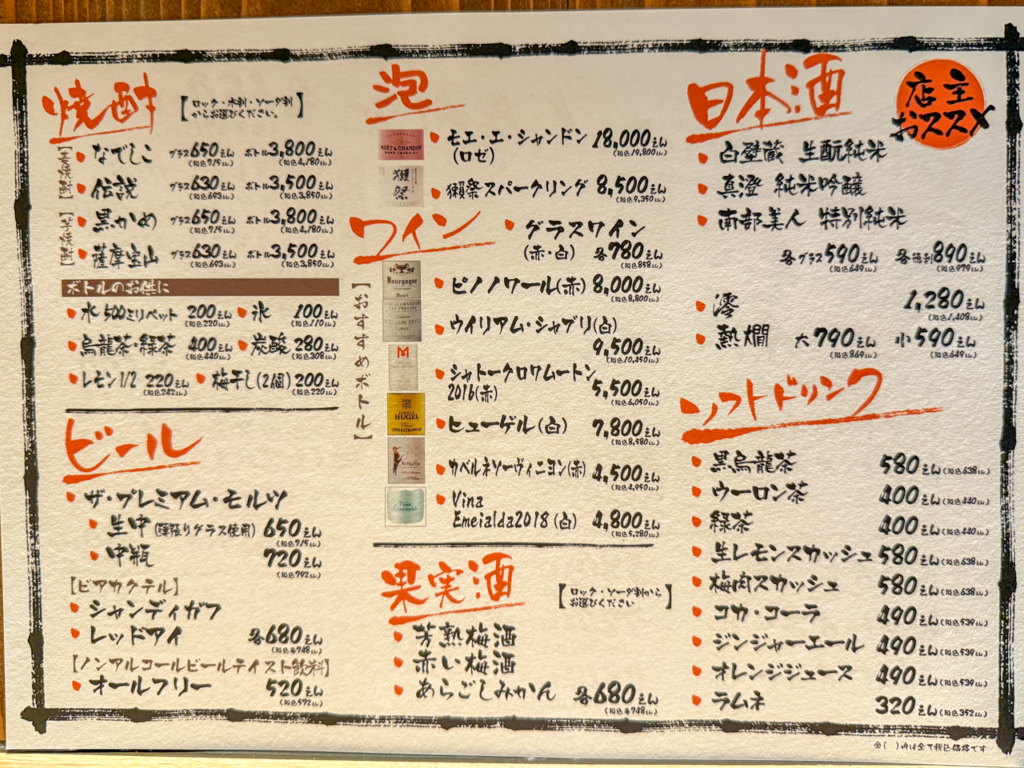 焼酎
【ロック・水割・ソーダ割
からお選びください。】
【麦焼酎】
なでしこ グラス650えん (税込715えん) ボトル3,800えん (税込4,180えん)
伝説 グラス630えん (税込693えん) ボトル3,500えん (税込3,850えん)
【芋焼酎】
黒かめ グラス650えん (税込715えん) ボトル3,800えん (税込4,180えん)
薩摩宝山 グラス630えん (税込693えん) ボトル3,500えん (税込3,850えん)
ボトルのお供に
水500ミリペット 200えん (税込220えん) 氷 100えん (税込110えん)
烏龍茶・緑茶 400えん (税込440えん) 炭酸 280えん (税込308えん)
レモン1/2 220えん (税込242えん) 梅干し(2個) 200えん (税込220えん)
ビール
ザ・プレミアム・モルツ
生中(薄張りグラス使用) 650えん (税込715えん)
中瓶 720えん (税込792えん)
【ビアカクテル】
シャンディガフ
レッドアイ 各680えん (税込各748えん)
【ノンアルコールビールテイスト飲料】
オールフリー 520えん (税込572えん)
泡
MOËT & CHANDON
モエ・エ・シャンドン 18,000えん
(ロゼ) (税込19,800えん)
獺祭
獺祭スパークリング 8,500えん (税込9,350えん)
ワイン
グラスワイン
(赤・白) 各780えん (税込858えん)
【おすすめボトル】
Bourgogne
ピノノワール(赤) 8,000えん (税込8,800えん)
ウイリアム・シャブリ(白)
9,500えん (税込10,450えん)
M
シャトークロワムートン
2016(赤) 5,500えん (税込6,050えん)
HUGEL
ヒューゲル(白) 7,800えん (税込8,580えん)
カベルネソーヴィニヨン(赤) 4,500えん (税込4,950えん)
Vina
Emeialda2018(白) 4,800えん (税込5,280えん)
果実酒
【ロック・ソーダ割から
お選びください】
芳熟梅酒
赤い梅酒
あらごしみかん 各680えん (税込各748えん)
日本酒
店主
おススメ
白壁蔵 生酛純米
真澄 純米吟醸
南部美人 特別純米
各グラス590えん (税込649えん) 各徳利890えん (税込979えん)
澪 1,280えん (税込1,408えん)
熱燗 大790えん (税込869えん) 小590えん (税込649えん)
ソフトドリンク
黒烏龍茶 580えん(税込638えん)
ウーロン茶 400えん(税込440えん)
緑茶 400えん(税込440えん)
生レモンスカッシュ 580えん(税込638えん)
梅肉スカッシュ 580えん(税込638えん)
コカ・コーラ 490えん(税込539えん)
ジンジャーエール 490えん(税込539えん)
オレンジジュース 490えん(税込539えん)
ラムネ 320えん(税込352えん)
※( )内は全て税込価格です